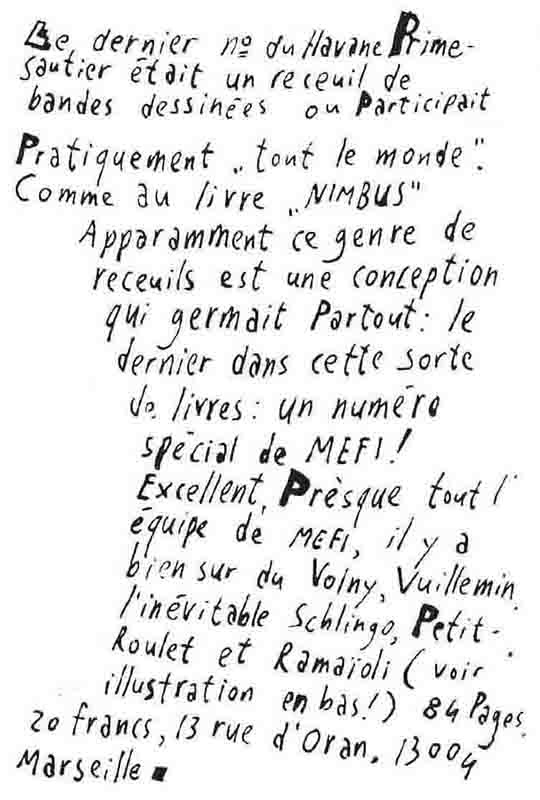 Le dernier nº du Havane Prime-
sautier était un receuil de
bandes dessinées ou Participait
Pratiquement „tout le monde".
Comme au livre „NIMBUS"
Apparamment ce genre de
receuils est une conception
qui germait Partout: le
dernier dans cette sorte
de livres: un numéro
spécial de MEFI!
Excellent, Prèsque tout l'
équipe de MEFI, il y a
bien sur du Volny, Vuillemin,
l'inévitable Schlingo, Petit-
Roulet et Ramaïoli (voir
illustration en bas!) 84 Pages.
20 francs, 13 rue d'Oran, 13004
Marseille ▪